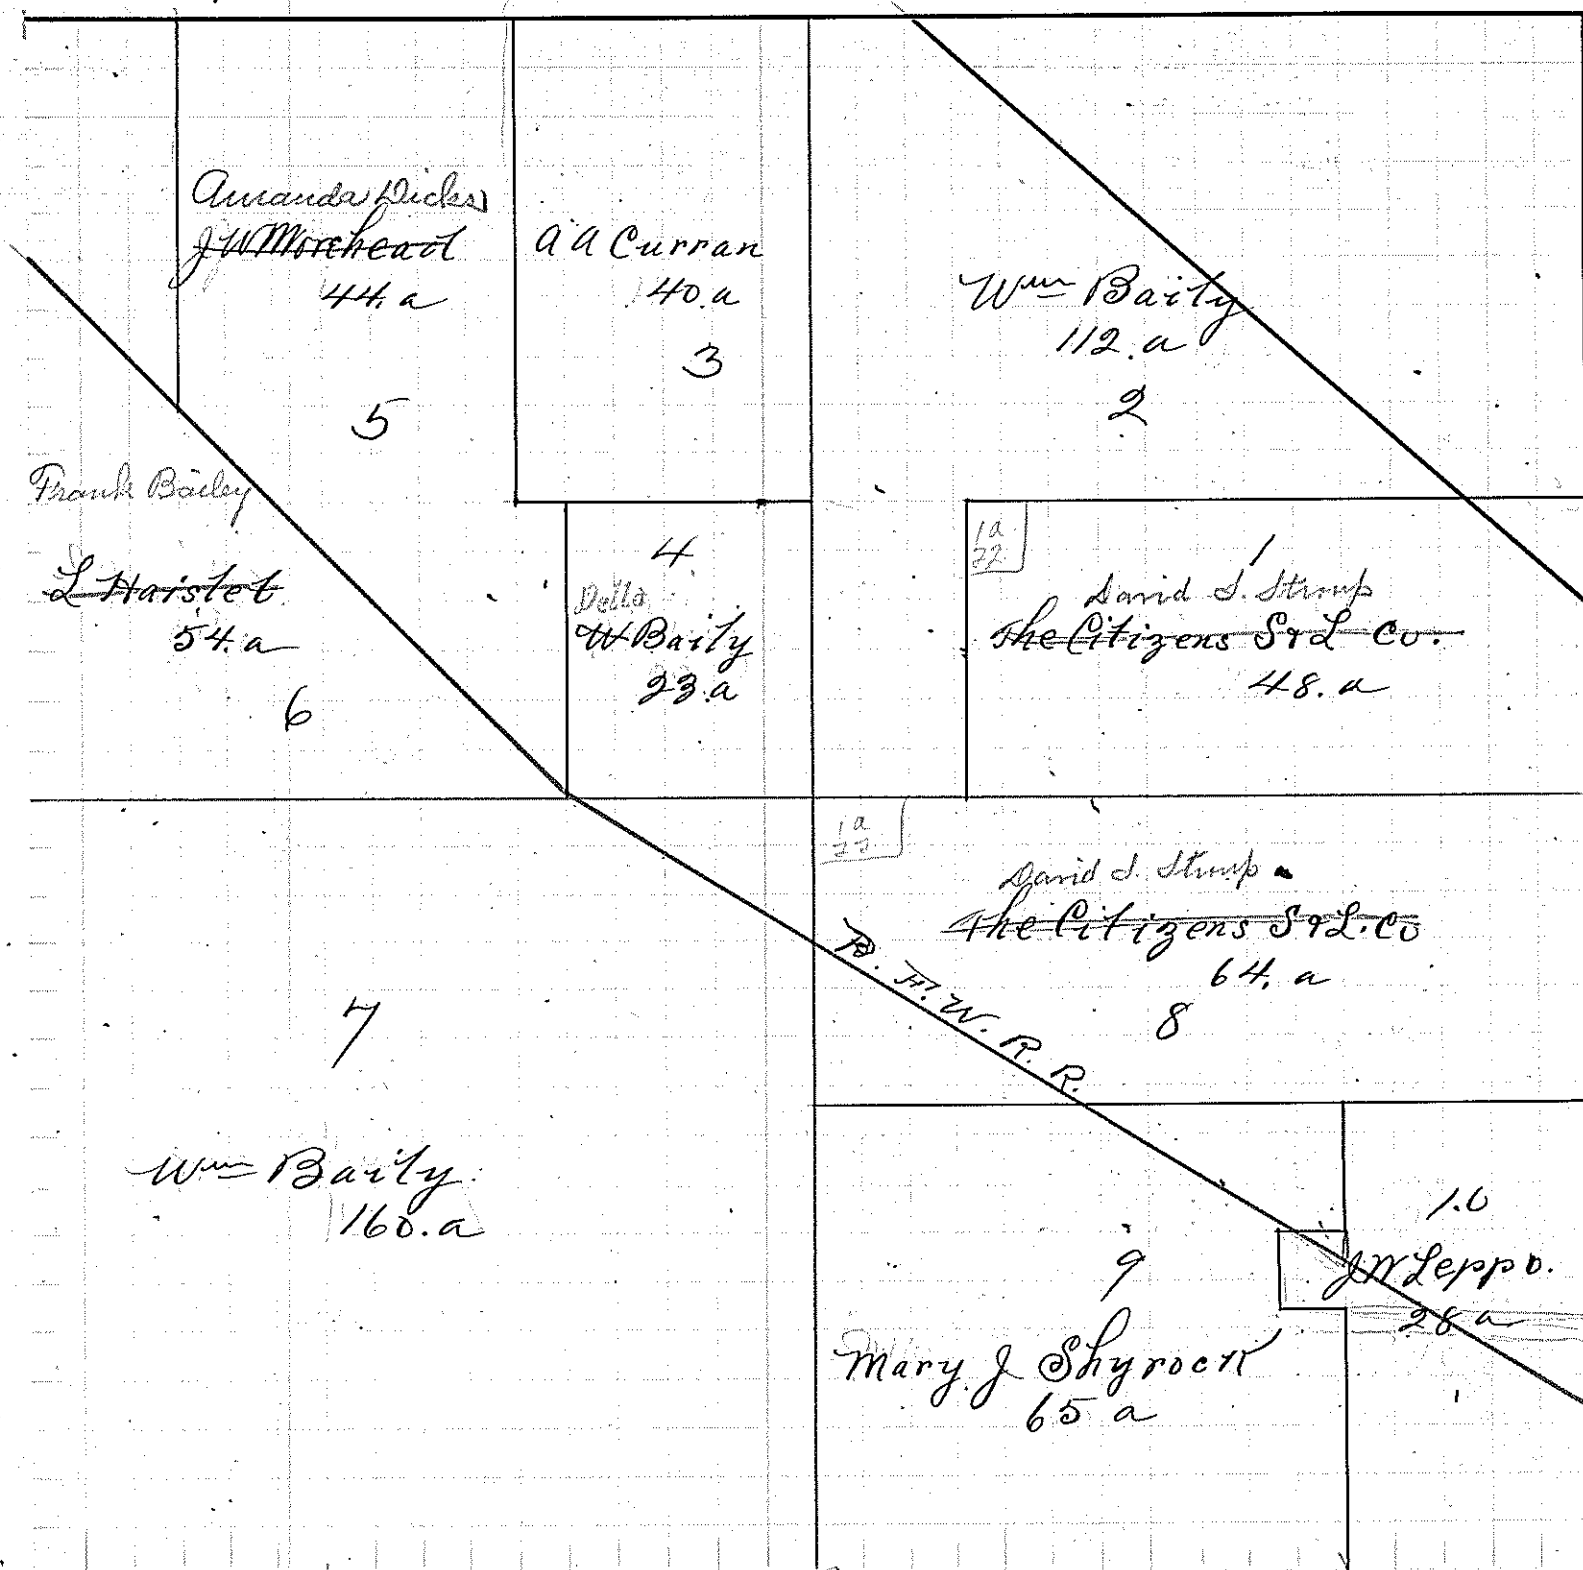 Amanda Dicks
J W Morehead
44. a
5
A A Curran
40. a
3
Wm Baily
112. a
2
Frank Bailey
L Haislet
54. a
6
4
Della
W Baily
23. a
1a
1
David S. Stump
The Citizens S & L Co.
48. a
1a
David S. Stump
The Citizens S & L. Co
64. a
8
B. F. W. R. R.
7
Wm Baily
160. a
9
Mary J Shyrock
65 a
10
J W Leppo.
28 a